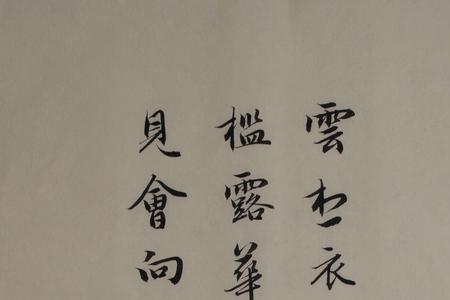 雲想衣
檻露華
見會向